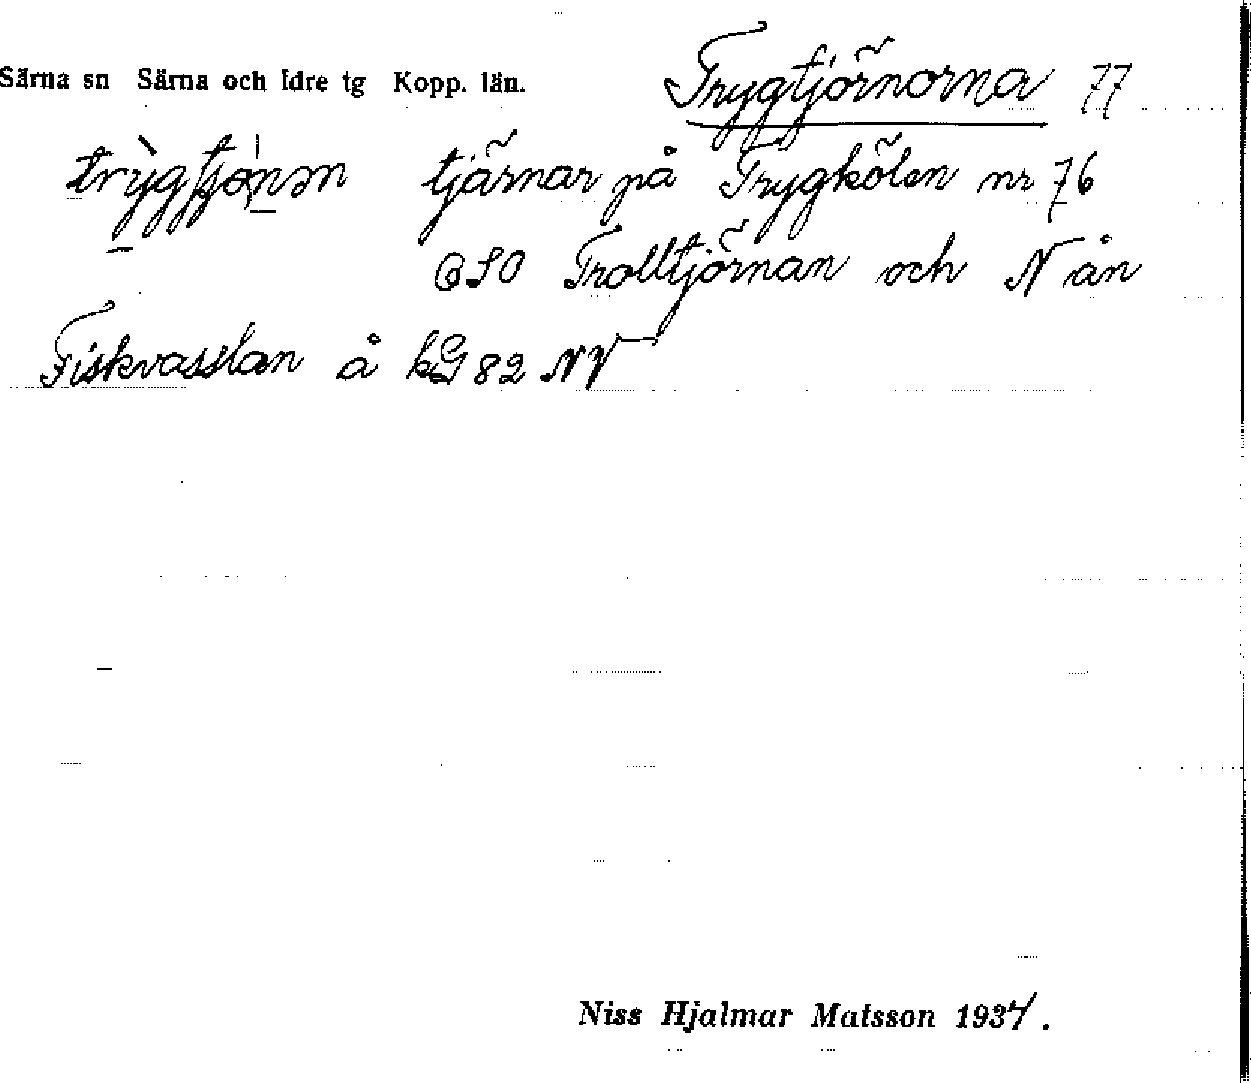 Särna sn Särna och Idre tg Kopp. län.
Trygtjörnorna 77
tjärnar på Trygkölen nr 76
SO Trolltjörnan och N ån
Fiskvasslan å 82 NV
Niss Hjalmar Matsson 1937.